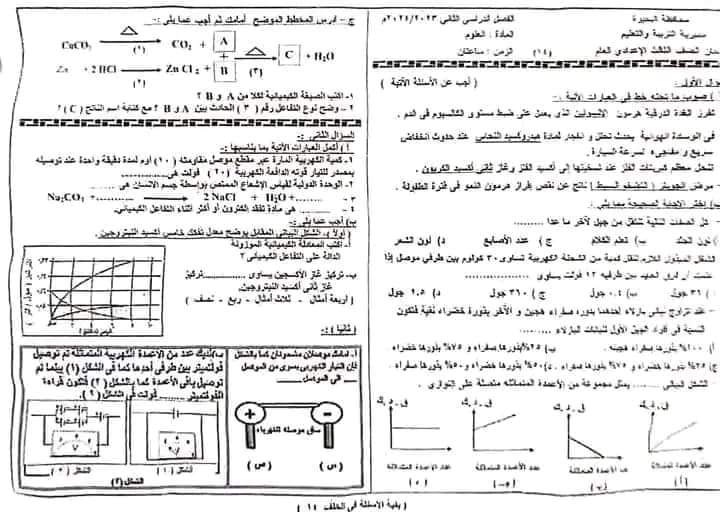 محافظة البحيرة
الفصل الدراسي الثاني ٢٠٢٤/٢٠٢٣م
مديرية التربية والتعليم
المادة : العلوم
الصف الثالث الإعدادي العام
(١٤)
الزمن : ساعتان
السؤال الأول :
( أجب عن الأسئلة الآتية )
أ ) صوب ما تحته خط في العبارات الآتية :-
تفرز الغدة الدرقية هرمون الأنسولين الذي يعمل على ضبط مستوى الكالسيوم في الدم .
في الوسادة الهوائية يحدث تحلل و انفجار لمادة هيدروكسيد النحاس عند حدوث انخفاض
سريع و مفاجيء لسرعة السيارة .
تنحل معظم كبريتات الفلز عند تسخينها إلى أكسيد الفلز وغاز ثاني أكسيد الكربون .
مرض الجويتر ( التضخم البسيط ) ناتج عن نقص إفراز هرمون النمو في فترة الطفولة .
ب) اختر الإجابة الصحيحة مما يلي :
كل الصفات التالية تنتقل من جيل لآخر ما عدا ........
لون الجلد ب) تعلم الكلام ج ) عدد الأصابع د) لون الشعر
الشغل المبذول اللازم لنقل كمية من الشحنة الكهربية تساوى ٣٠ كولوم بين طرفي موصل إذا
فرق الجهد بين طرفيه ١٢ فولت يساوى ........
٣٦ جول ب) ٠.٤ جول ج ) ٣٦٠ جول د) ٢.٥ جول
عند تزاوج نباتي بازلاء أحدهما بذوره صفراء هجين و الآخر بذوره خضراء نقية فتكون
النسبة في أفراد الجيل الأول لنباتات البازلاء ........
أ) ١٠٠٪ بذورها صفراء هجينة . ب) ٢٥٪ بذورها صفراء و ٧٥٪ بذورها خضراء
٢٥٪ بذورها خضراء و ٧٥٪ بذورها صفراء . د) ٥٠٪ بذورها خضراء و ٥٠٪ بذورها صفراء .
الشكل البياني ..... يمثل مجموعة من الأعمدة المتماثلة متصلة على التوازي .
ق . د . ك
ق . د . ك
ق . د . ك
ق . د . ك
عدد الأعمدة المتماثلة
عدد الأعمدة المتماثلة
عدد الأعمدة المتماثلة
عدد الأعمدة المتماثلة
ج - ادرس المخطط الموضح أمامك ثم أجب عما يلي :-
CaCO₃ △ (١) CO₂ + A
+ △ (٣) C + H₂O
Zn + 2 HCl (٢) Zn Cl₂ + B
١- اكتب الصيغة الكيميائية لكلا من A و B ؟
٢- وضح نوع التفاعل رقم ( ٣ ) الحادث بين A و B ؟ مع كتابة اسم الناتج ( C ) ؟
السؤال الثاني :-
أ ) أكمل العبارات الآتية بما يناسبها :-
١- كمية الكهربية المارة عبر مقطع موصل مقاومته ( ١٠ ) أوم لمدة دقيقة واحدة عند توصيله
بمصدر للتيار قوته الدافعة الكهربية ( ٢٠ ) فولت هي........
٢- الوحدة الدولية لقياس الإشعاع الممتص بواسطة جسم الإنسان هي ......
٣ - Na₂CO₃ +........... 2 NaCl + H₂O +.........
٤ - ........ هي مادة تفقد إلكترون أو أكثر أثناء التفاعل الكيميائي.
ب) أجب عما يلي :
( أولاً ) الشكل البياني المقابل يوضح معدل تفكك خامس أكسيد النيتروجين.
أ- اكتب المعادلة الكيميائية الموزونة
الدالة على التفاعل الكيميائي ؟
ب- تركيز غاز الأكسجين يساوى ...........تركيز
غاز ثاني أكسيد النيتروجين.
( أربعة أمثال - ثلاث أمثال - ربع - نصف )
( ثانيا ) :-
أ- أمامك موصلان مشحونان كما بالشكل
فإن التيار الكهربي يسرى من الموصل
..... إلى الموصل.....
+
−
ساق موصلة للكهرباء
( ص )
( س )
ب) لديك عدد من الأعمدة الكهربية المتماثلة تم توصيل
فولتميتر بين طرفي أحدها كما في الشكل (١) بينما تم
توصيل باقي الأعمدة كما بالشكل ( ٢ ) فتكون قراءة
الفولتميتر ........ فولت في الشكل ( ٢ ) .
V
V
الشكل ( ٢ )
الشكل ( ١ )
( بقية الأسئلة في الخلف )